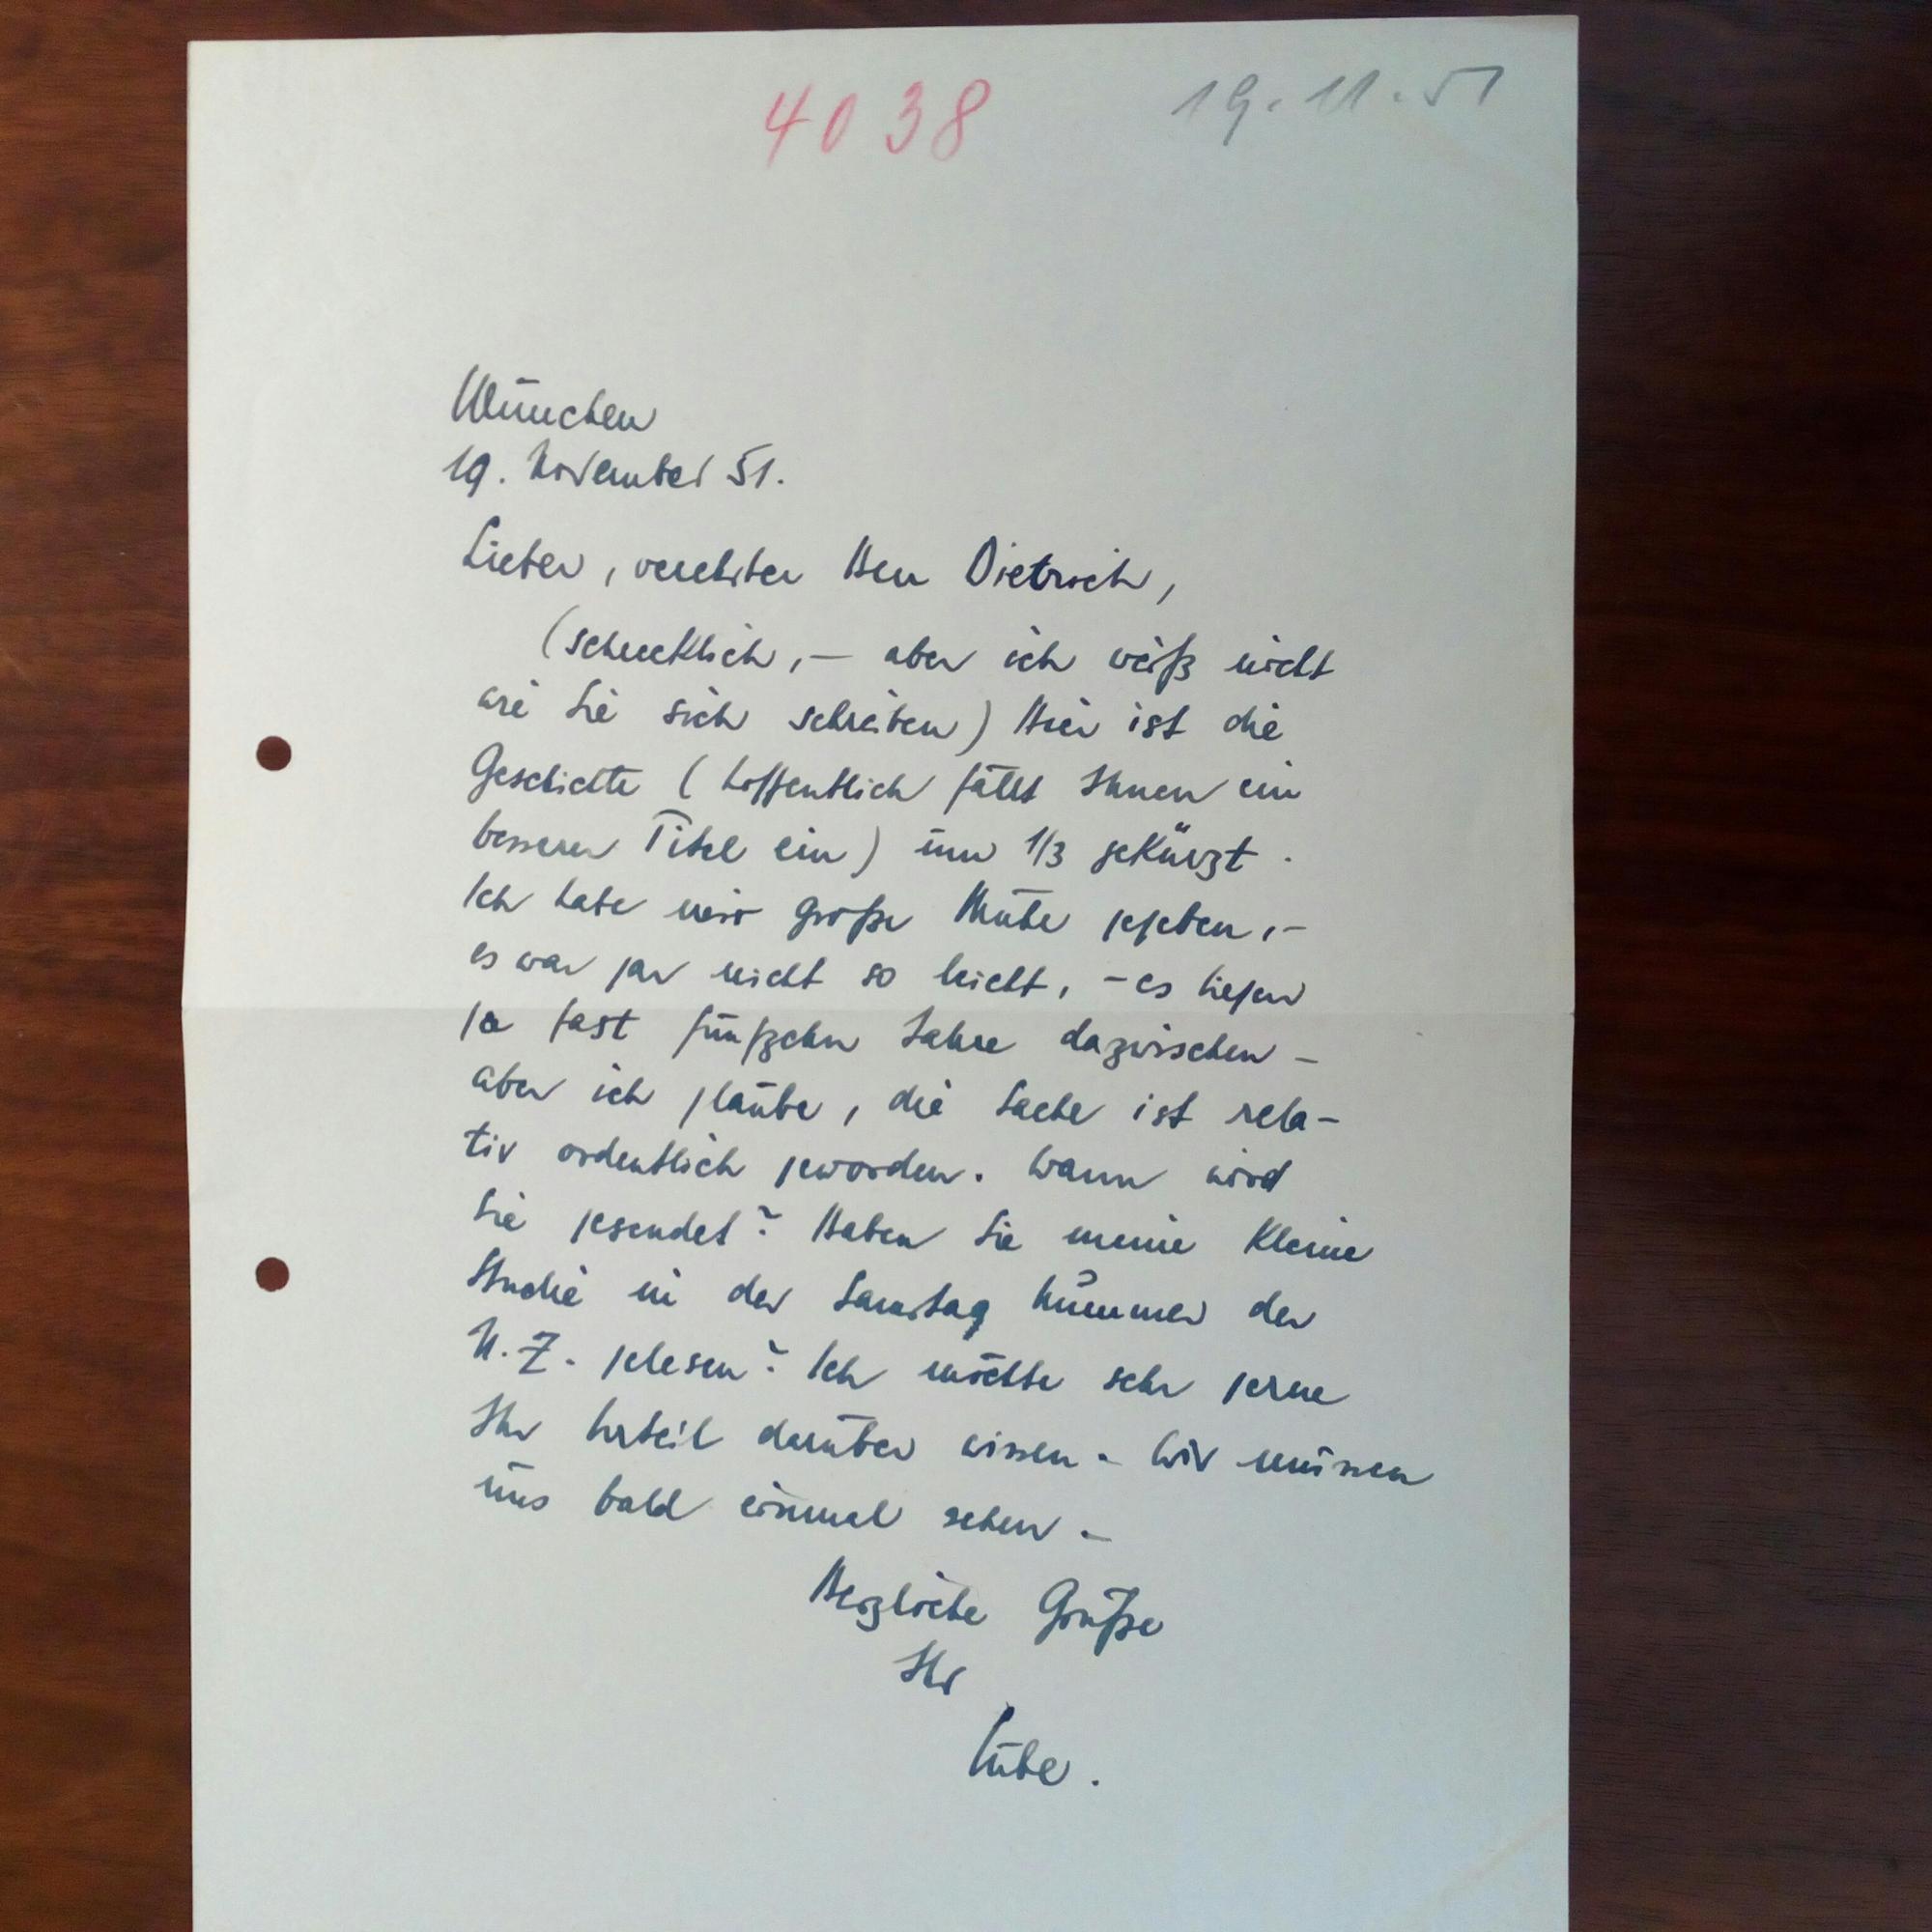 4038
19.11.51
München
19. November 51.
Lieber, verehrter Herr Dietrich,
(schrecklich, – aber ich weiß nicht
wie Sie sich schreiben) Hier ist die
Geschichte (hoffentlich fällt Ihnen ein
besserer Titel ein) um 1/3 gekürzt.
Ich habe mir große Mühe gegeben, –
es war gar nicht so leicht, – es liegen
ja fast fünfzehn Jahre dazwischen –
aber ich glaube, die Sache ist rela-
tiv ordentlich geworden. Wann wird
Sie gesendet? Haben Sie meine kleine
Studie in der Samstag Nummer der
N.Z. gelesen? Ich möchte sehr gerne
Ihr Urteil darüber wissen. – Wir müssen
uns bald einmal sehen. –
Herzliche Grüße
Ihr